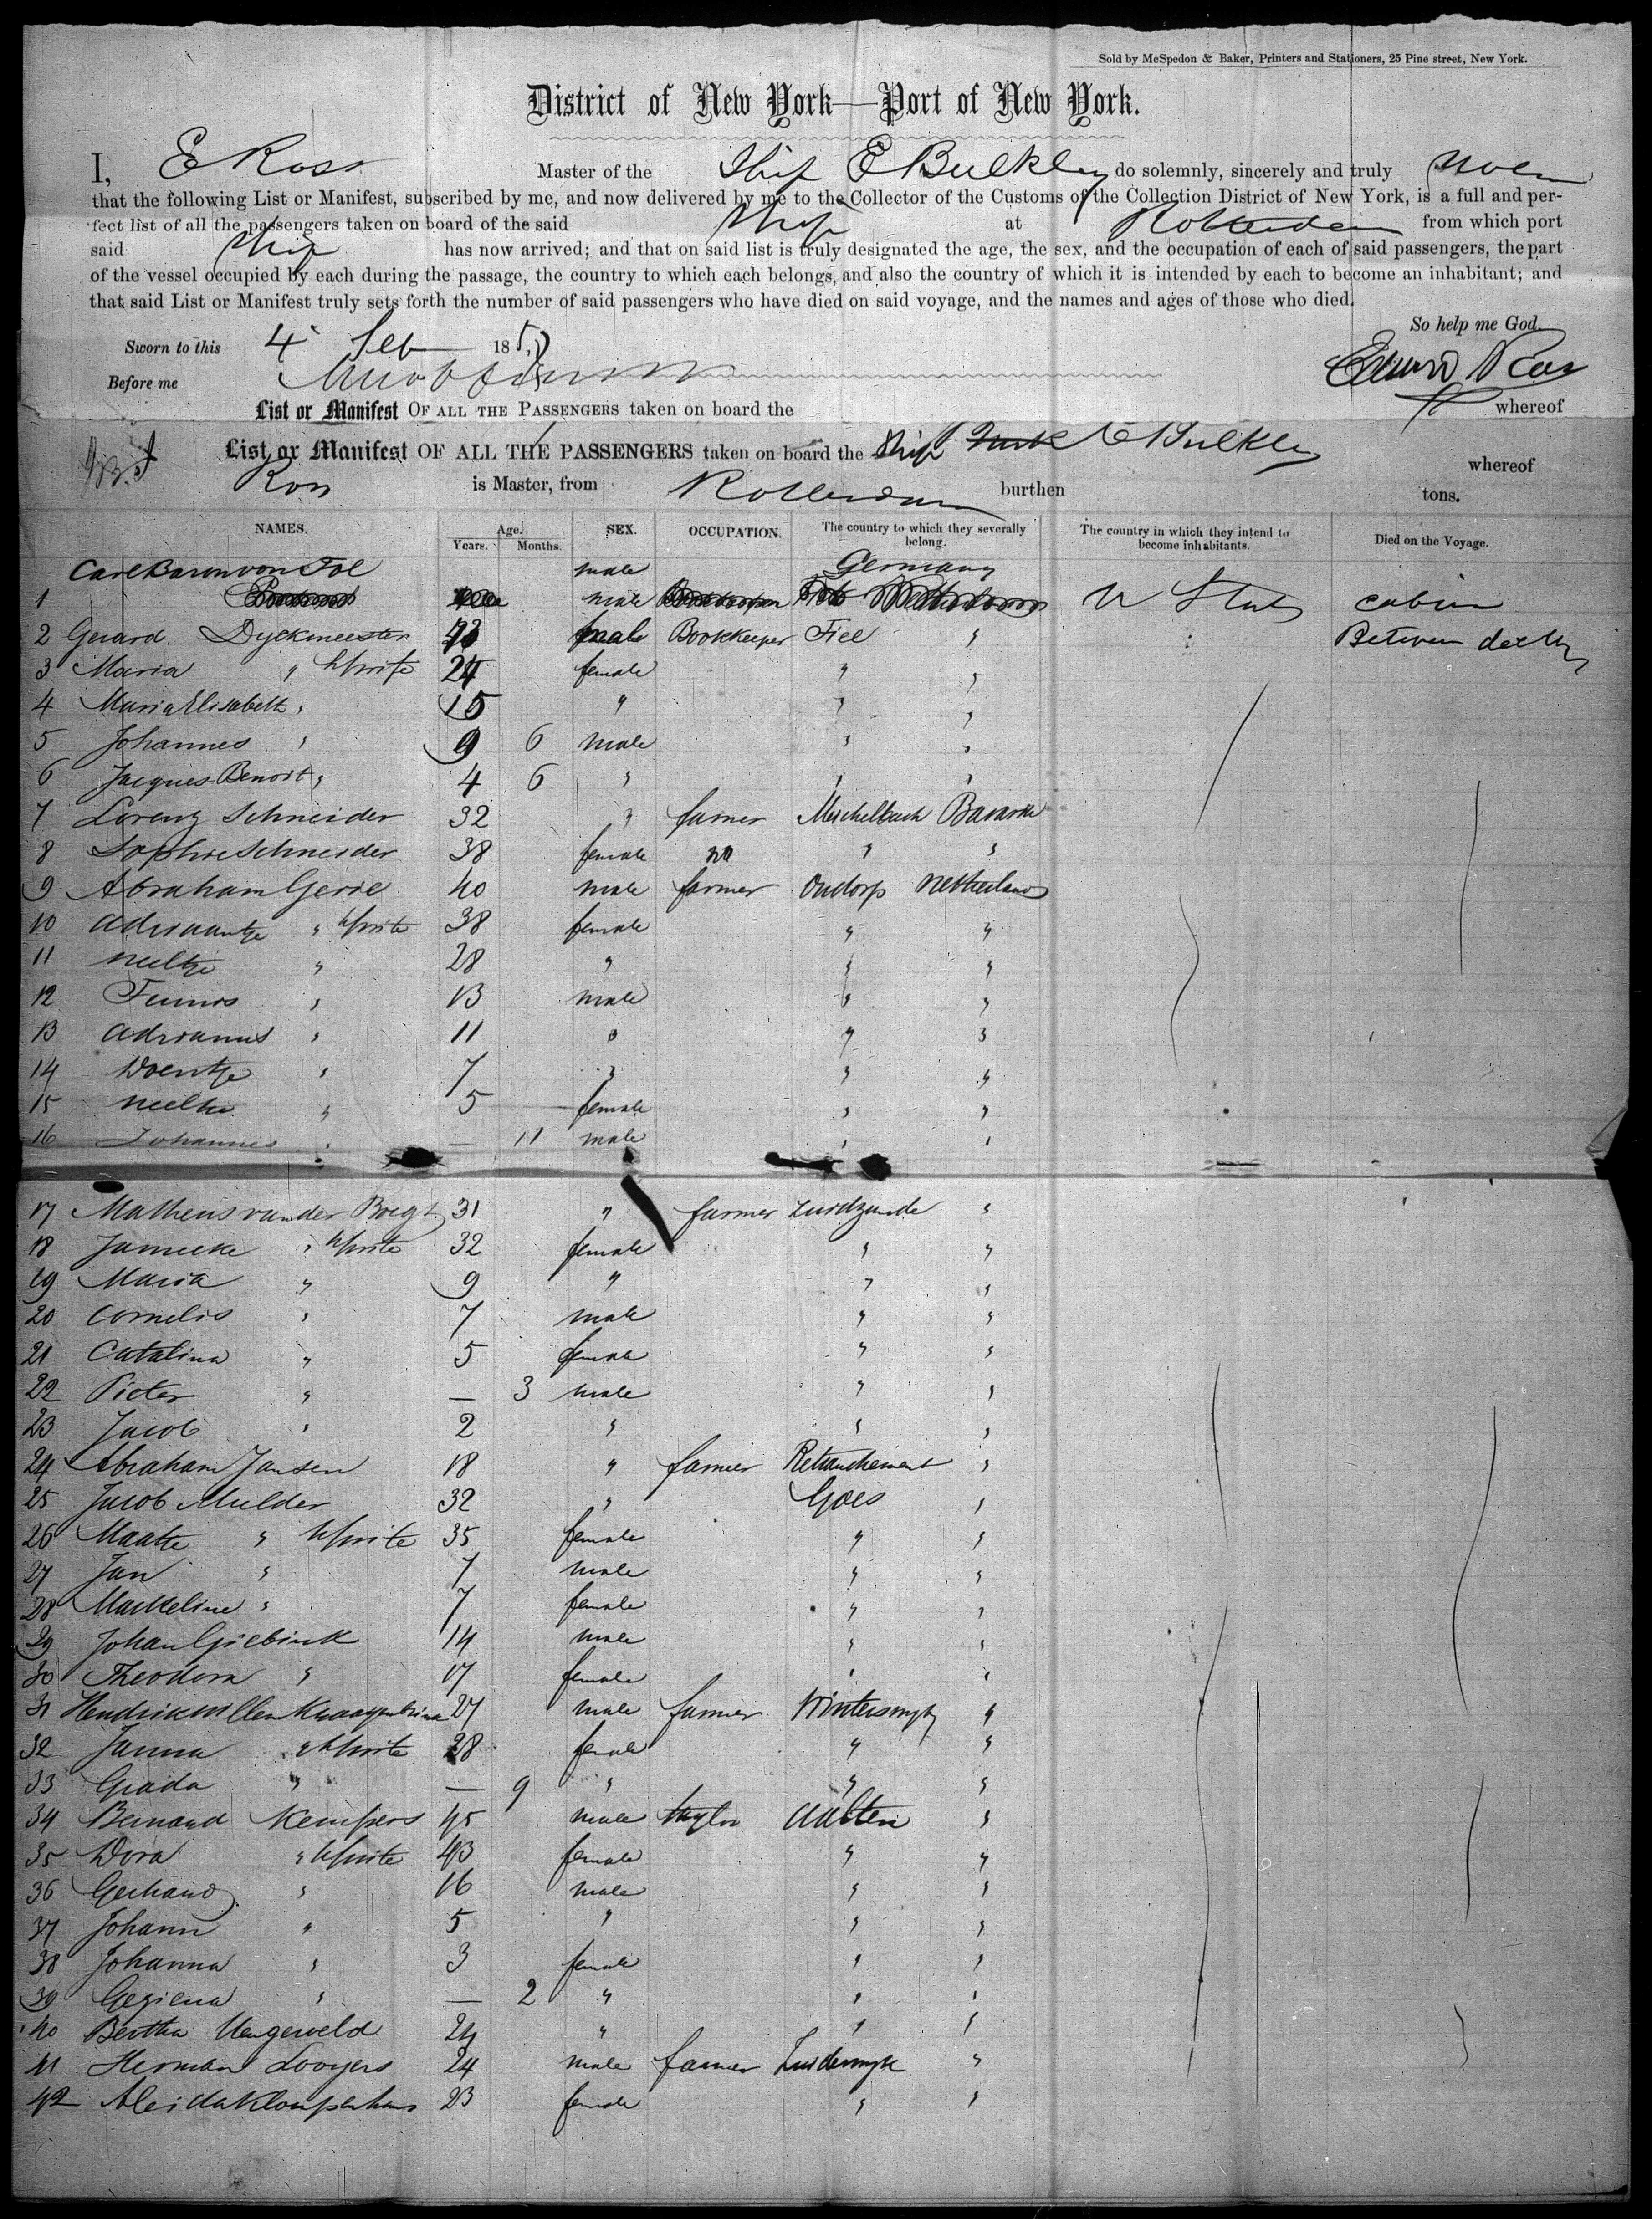 Sold by McSpedon & Baker, Printers and Stationers, 25 Pine street, New York.
District of New York—Port of New York.
I, E Ross Master of the Ship E Bulkley do solemnly, sincerely and truly swear
that the following List or Manifest, subscribed by me, and now delivered by me to the Collector of the Customs of the Collection District of New York, is a full and per-
fect list of all the passengers taken on board of the said Ship at Rotterdam from which port
said Ship has now arrived; and that on said list is truly designated the age, the sex, and the occupation of each of said passengers, the part
of the vessel occupied by each during the passage, the country to which each belongs, and also the country of which it is intended by each to become an inhabitant; and
that said List or Manifest truly sets forth the number of said passengers who have died on said voyage, and the names and ages of those who died.
So help me God.
Sworn to this 4 Feb 185
Before me Edward Ross
List or Manifest OF ALL THE PASSENGERS taken on board the whereof
List or Manifest OF ALL THE PASSENGERS taken on board the Ship E Bulkley whereof
Ross is Master, from Rotterdam burthen tons.
NAMES. Age. SEX. OCCUPATION. The country to which they severally belong. The country in which they intend to become inhabitants. Died on the Voyage.
Years. Months.
Carl Baron von Tol male Germany
1 male U States cabin
2 Gerard Dyckmeester male Bookkeeper Tiel " " Between decks
3 Maria " wife 24 female " "
4 Maria Elisabeth " 15 " " "
5 Johannes " 9 6 male " "
6 Jacques Benoit " 4 6 " " "
7 Lorenz Schneider 32 " farmer Michelbach Bavaria
8 Sophie Schneider 38 female no " "
9 Abraham Gerie 40 male farmer Oudorp Netherland
10 Adriaantje " wife 38 female " "
11 Neeltje " 28 " " "
12 Teunis " 13 male " "
13 Adrianus " 11 " " "
14 Woentje " 7 " " "
15 Neeltie " 5 female " "
16 Johannes " — 11 male " "
17 Matheus van der Boegt 31 " farmer Zuidzande "
18 Janneke " wife 32 female " "
19 Maria " 9 " " "
20 Cornelis " 7 male " "
21 Catalina " 5 female " "
22 Pieter " — 3 male " "
23 Jacob " 2 " " "
24 Abraham Jansen 18 " farmer Retranchement "
25 Jacob Mulder 32 " Goes "
26 Maatje " wife 35 female " "
27 Jan " 7 male " "
28 Mackeline " 7 female " "
29 Johan Giebink 14 male " "
30 Theodora " 17 female " "
31 Hendrik Willem 27 male farmer Winterswyk "
32 Janna " wife 28 female " "
33 Grada " — 9 " " "
34 Bernard Kempers 45 male taylor Aalten "
35 Dora " wife 43 female " "
36 Gerhard " 16 male " "
37 Johann " 5 " " "
38 Johanna " 3 female " "
39 Geziena " — 2 " " "
40 Bertha Hengeveld 24 " " "
41 Herman Looyers 24 male farmer "
42 Aleida 23 female " "